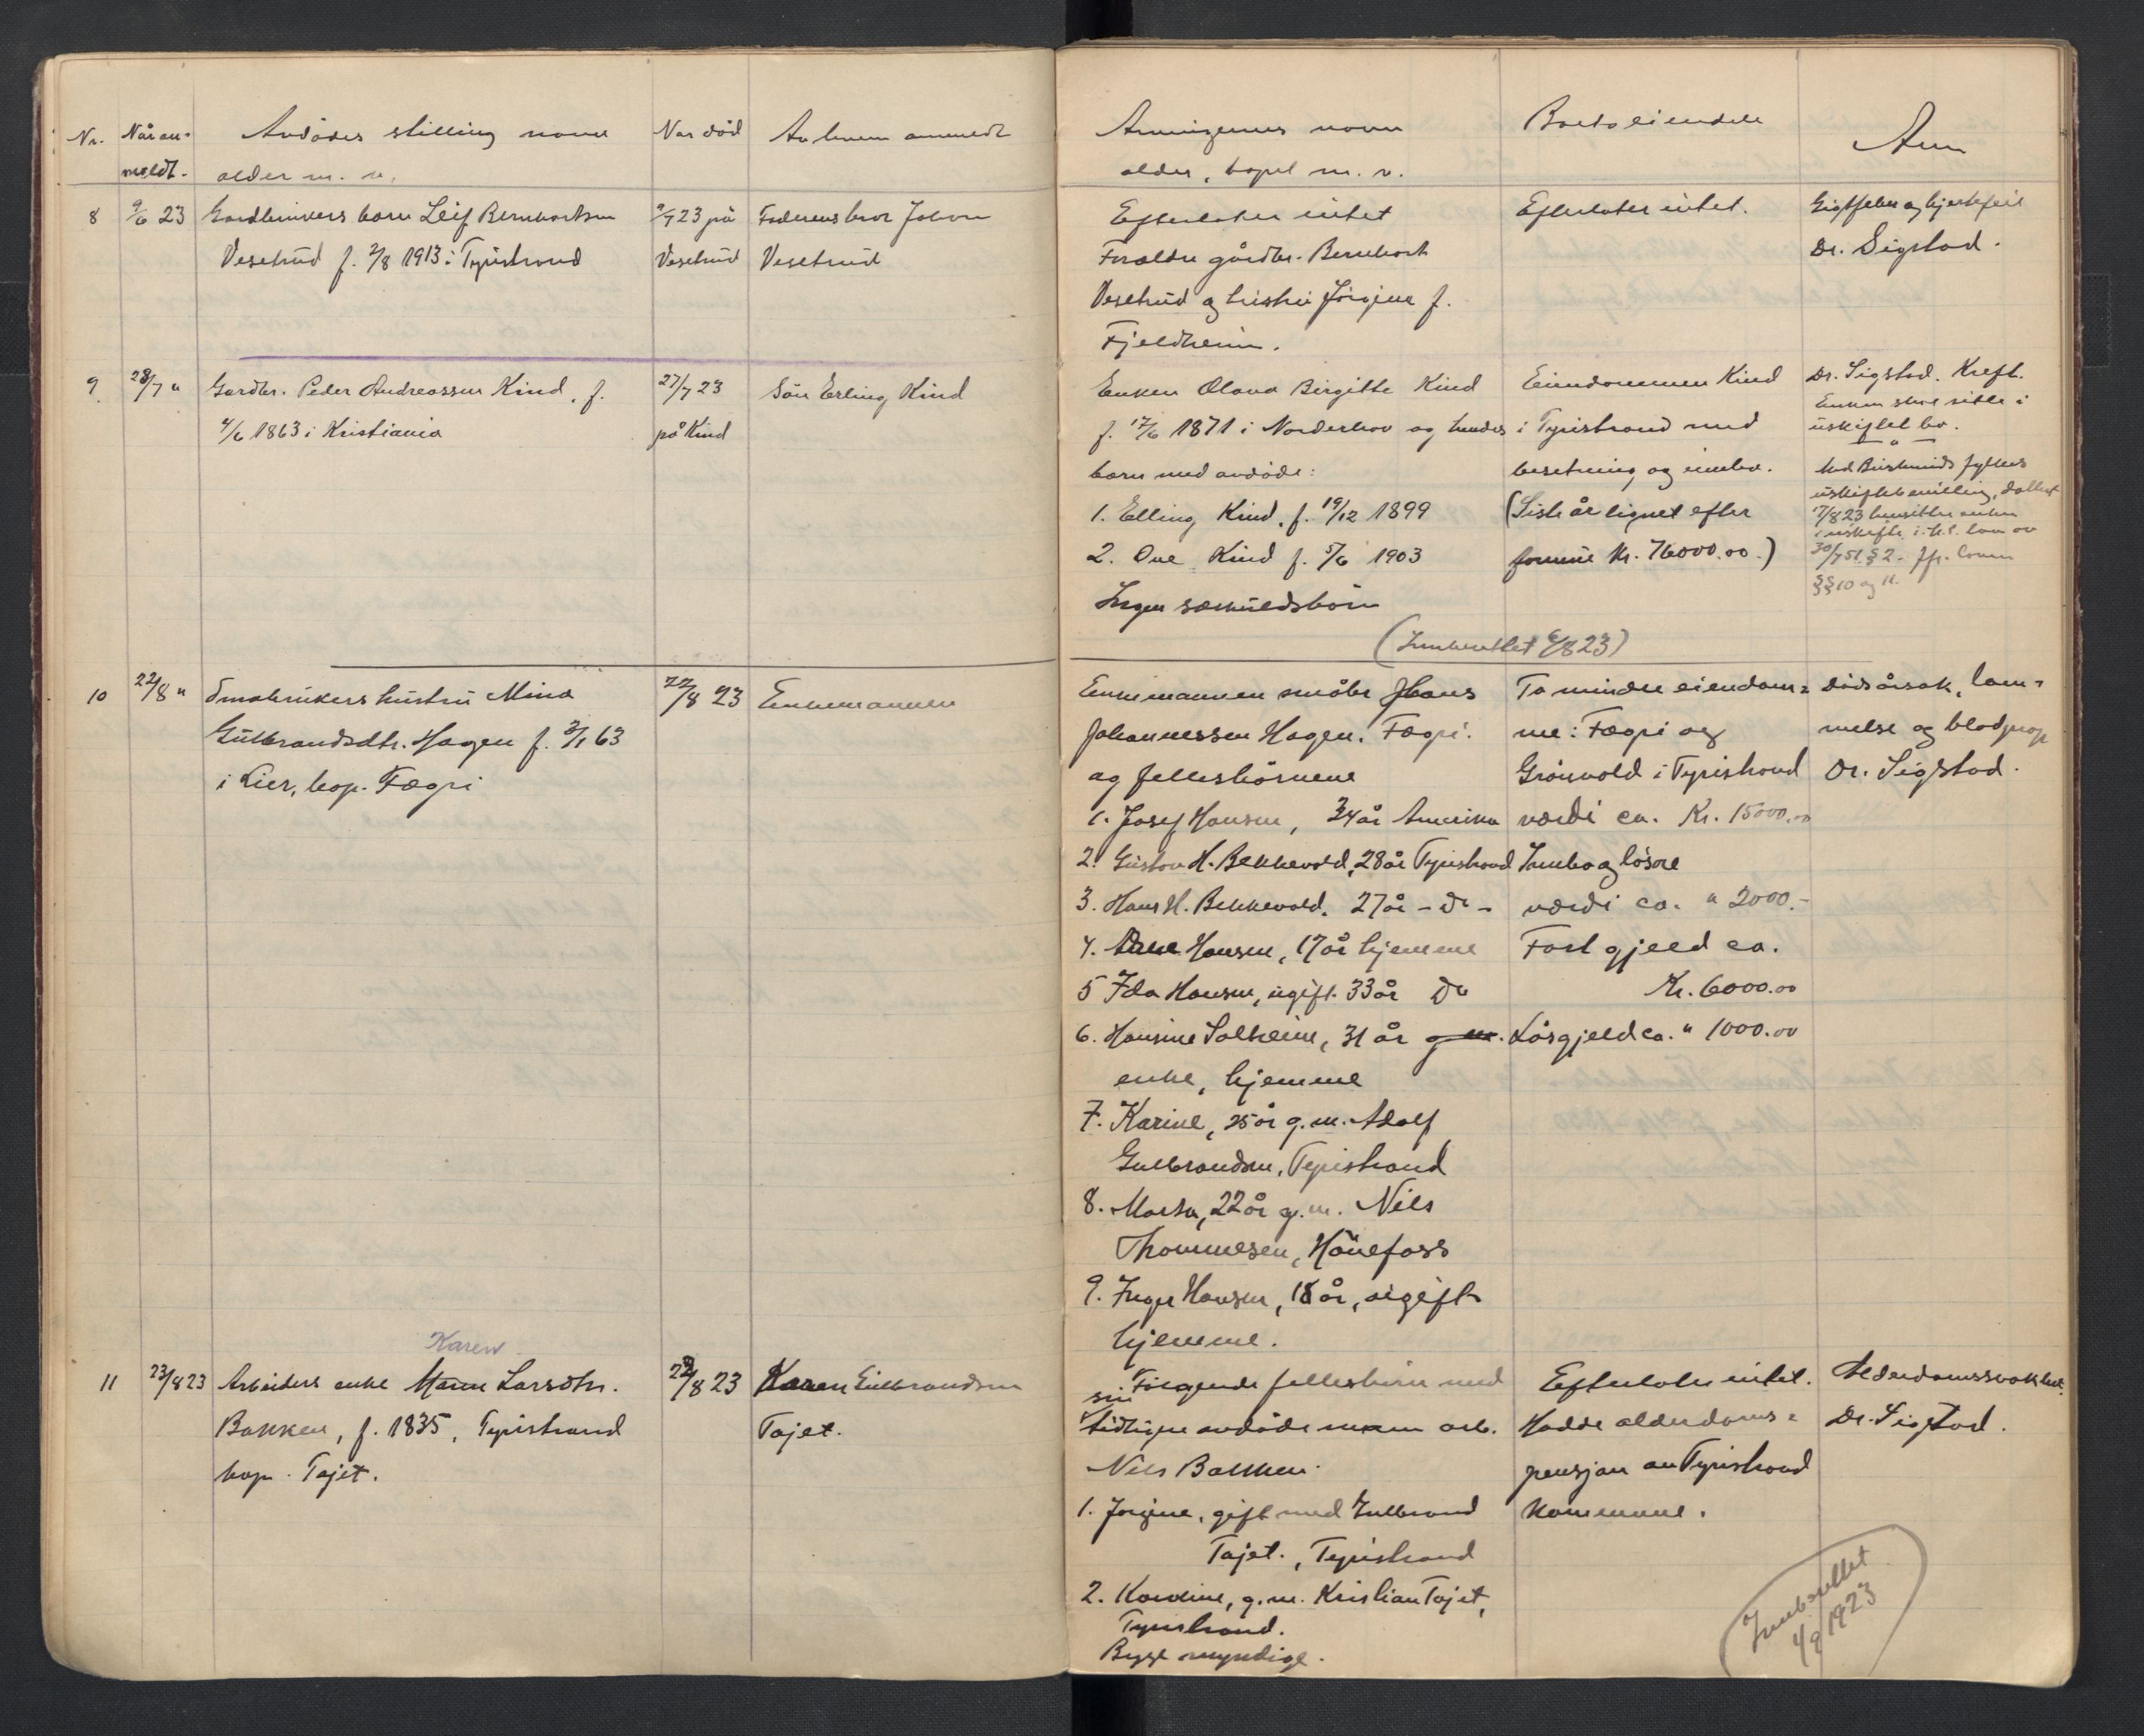 Nr.
Når an-
meldt.
Avdödes stilling navn
alder m. v.
Nar död
Av hvem anmeldt
8
9/6 23
Gardbrukers barn Leif Bernhartsen
Vesetrud f. 2/8 1913 i Tyristrand
23 på
Vesetrud
Faderens bror Johan
Vesetrud
9
28/7 "
Gardbr. Peder Andreassen Kind, f.
4/6 1863 i Kristiania
27/7 23
på Kind
Sön Erling Kind
10
22/8 "
Smabrukers hustru Mina
Gulbrandsdtr. Hagen f. 3/1 63
i Lier, bop. Fægri
22/8 23
Enkemannen
11
23/8 23
Karen
Arbeiders enke Maren Larsdtr.
Bakken, f. 1835, Tyristrand
bop. Tajet.
22/8 23
Karen Gulbrandsen
Tajet.
Arvingernes navn
alder, bopel m. v.
Boets eiendele
Anm
Efterlater intet
Forældre gårdbr. Bernhart
Vesetrud og hustru Jörgine f.
Fjeldheim.
Efterlater intet.
Gigtfeber og hjertefeil
Dr. Sigstad.
Enken Olava Birgitte Kind
f. 17/6 1871 i Norderhov og hendes
barn med avdöde:
1. Elling Kind, f. 19/12 1899
2. Ove Kind f. 5/6 1903
Ingen særkuldsbörn
Eiendommen Kind
i Tyristrand med
besetning og innbo.
(Siste år lignet efter
formue Kr. 76000.00.)
Dr. Sigstad. Kreft.
Enken skal sitte i
uskiftet bo.
— " —
Med Buskeruds fylkes
uskiftebevilling, datert
17/8 23 hensitter enken
i uskifte i.h.t. lov av
30/7 51 § 2 - jfr. loven
§§ 10 og 11.
(Innberettet 6/8 23)
Enkemannen småbr Hans
Johannessen Hagen. Fægri.
og fellesbörnene
1. Josef Hansen, 34 år Amerika
2. Gustav H. Bekkevold, 28 år Tyristrand
3. Hans H. Bekkevold. 27 år - do -
4. Arne Hansen, 17 år hjemme
5 Ida Hansen, ugift 33 år Do
6. Hansine Solheim, 31 år g.m.
enke, hjemme
7. Karine, 25 år g.m. Adolf
Gulbrandsen, Tyristrand
8. Marta, 22 år g.m. Nils
Thommesen, Hönefoss
9. Inger Hansen, 18 år, ugift
hjemme.
To mindre eiendom=
me: Fægri og
Grönvold i Tyristrand
værdi ca. Kr. 15000.00
Innbo og lösöre
værdi ca. " 2000.-
Fast gjeld ca.
Kr. 6000.00
Lösgjeld ca. " 1000.00
Dödsårsak, lam=
melse og blodprop
Dr. Sigstad.
Fölgende fellesbörn med
sin
tidligere avdöde mann arb.
Nils Bakken.
1. Jörgine, gift med Gulbrand
Tajet., Tyristrand
2. Karoline, g.m. Kristian Tajet,
Tyristrand.
Begge myndige.
Efterlater intet.
Hadde alderdoms=
pensjon av Tyristrand
Kommune.
Alderdomssvakhet.
Dr. Sigstad.
Innberettet
4/9 1923